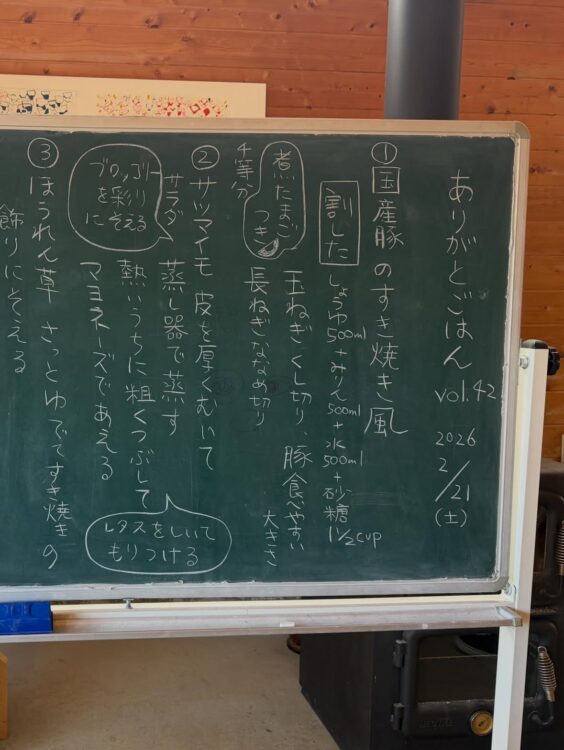 ありがとごはん vol.42
2026 2/21 (土)
① 国産豚のすき焼き風
割した しょうゆ500ml+みりん500ml+水500ml+砂糖1 1/2cup
玉ねぎくし切り、豚食べやすい大きさ
長ねぎななめ切り
煮たまごつき
4等分
② サツマイモ 皮を厚くむいて
サラダ 蒸し器で蒸す
熱いうちに粗くつぶして
マヨネーズであえる
ブロッコリーを彩りにそえる
レタスをしいてもりつける
③ ほうれん草 さっとゆでてすき焼きの
飾りにそえる